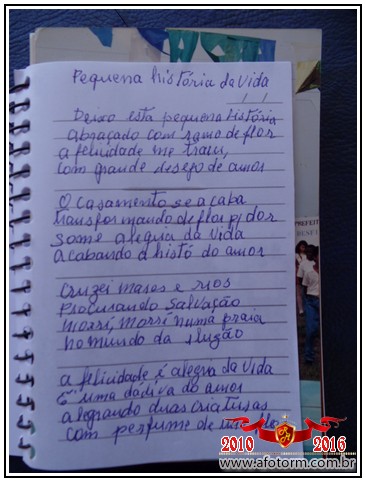 Pequena história da vida
Deixo esta pequena história
abraçado com ramo de flor
a felicidade me traiu,
com grande desejo de amor
O casamento se acaba
transformando de flor p/ dor
some alegria da vida
acabando d histó do amor
Cruzei mares e rios
Procurando salvação
morri, morri numa praia
no mundo da iluzão
a felicidade é alegria da vida
É uma dádiva do amor
alegrando duas criaturas
com perfume de uma flo
PREFEIT
2010 2016
www.afotorm.com.br